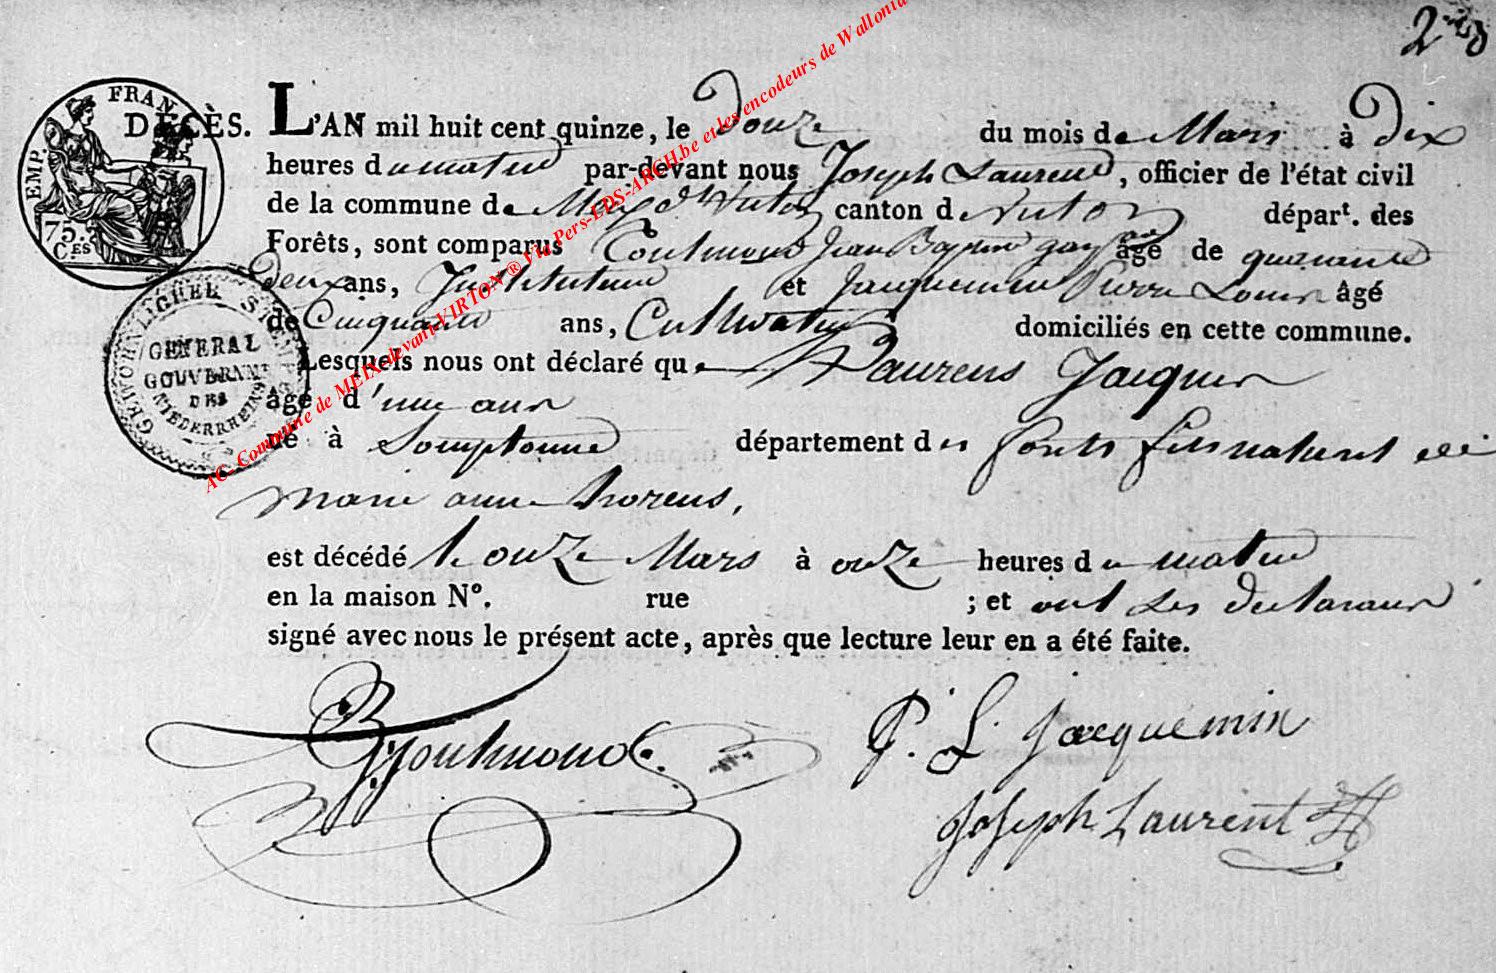 EMP. FRAN
75. C.ES
GENERAL
GOUVERNMT
DES
NIEDERRHEINS
DÉCÈS. L'AN mil huit cent quinze, le douze du mois de Mars à dix
heures du matin par-devant nous Joseph Laurent, officier de l'état civil
de la commune de Meix dt Virton canton de Virton départ. des
Forêts, sont comparus Toulmond Jean Baptiste âgé de quarante
deux ans, Instituteur et Jacquemin Pierre Louis âgé
de Cinquante ans, Cultivateur domiciliés en cette commune.
Lesquels nous ont déclaré que Laurens Jacques
âgé d'une ans
né à Sompthonne département des forets fils naturel de
Marie anne Lorens,
est décédé le onze Mars à onze heures du matin
en la maison N°. rue ; et ont Les declarans
signé avec nous le présent acte, après que lecture leur en a été faite.
Toulmond.
P. L. Jacquemin
Joseph Laurent
AC- Commune de MEIX-devant-VIRTON ® Via Pers-LDS-ARCH.be et les encodeurs de Wallonia